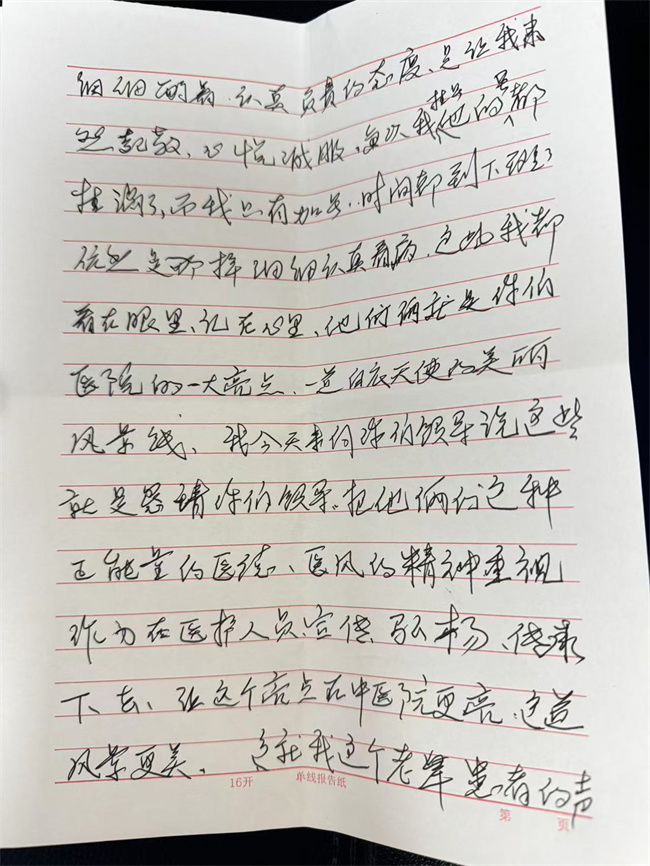 细细两着、认真负责的态度、是让我肃
然起敬、心悦诚服、每次我挂号他的号都
挂满了,而我只有加号,时间都到下班了
依然是那样细细认真看病、这些我都
看在眼里、记在心里、他们俩就是你们
医院的一大亮点、一道白衣天使的美丽
风景线、我今天来向你们领导说这些
就是恳请你们领导、把他俩们这种
正能量的医德、医风的精神重视
作为在医护人员宣传、弘杨、传承
下去、让这个亮点在中医院更亮、这道
风景更美、这就我这个老年患者的声
16开 单线报告纸 第 页